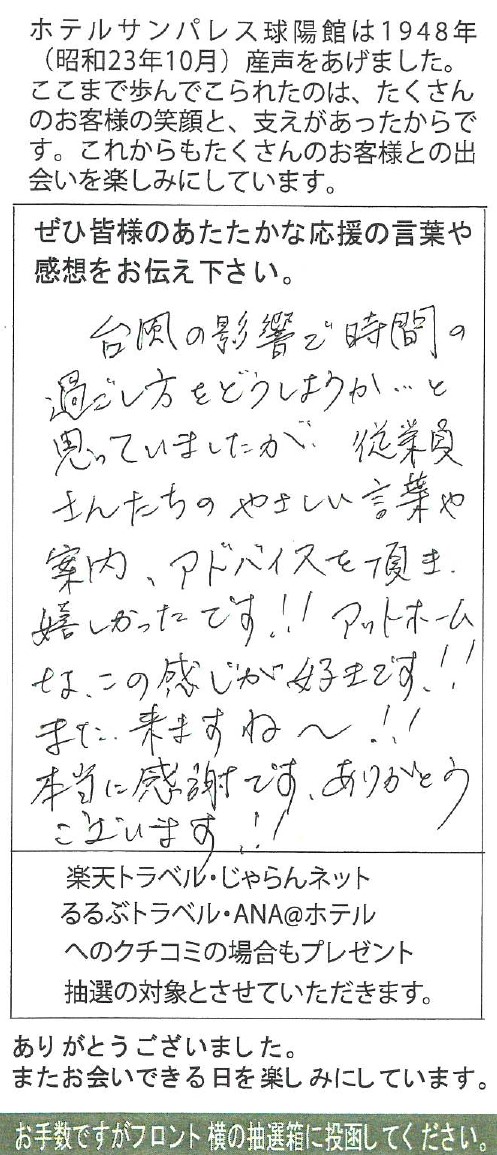 ホテルサンパレス球陽館は1948年
（昭和23年10月）産声をあげました。
ここまで歩んでこられたのは、たくさん
のお客様の笑顔と、支えがあったからで
す。これからもたくさんのお客様との出
会いを楽しみにしています。
ぜひ皆様のあたたかな応援の言葉や
感想をお伝え下さい。
台風の影響で時間の
過ごし方をどうしようか…と
思っていましたが、従業員
さんたちのやさしい言葉や
案内、アドバイスを頂き、
嬉しかったです!! アットホーム
な、この感じが好きです!!
また、来ますね〜!!
本当に感謝です、ありがとう
ございます!!
楽天トラベル・じゃらんネット
るるぶトラベル・ANA@ホテル
へのクチコミの場合もプレゼント
抽選の対象とさせていただきます。
ありがとうございました。
またお会いできる日を楽しみにしています。
お手数ですがフロント横の抽選箱に投函してください。